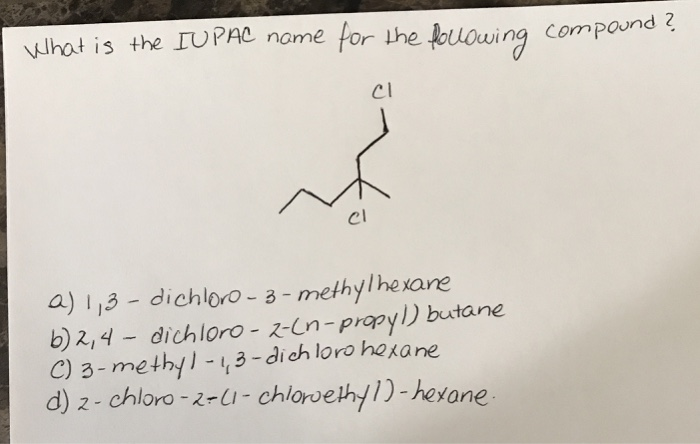 What is the IUPAC name for the following compound?
Cl
Cl
a) 1,3 - dichloro - 3 - methylhexane
b) 2,4 - dichloro - 2-(n-propyl) butane
c) 3-methyl - 1,3-dichlorohexane
d) 2-chloro-2-(1-chloroethyl)-hexane.